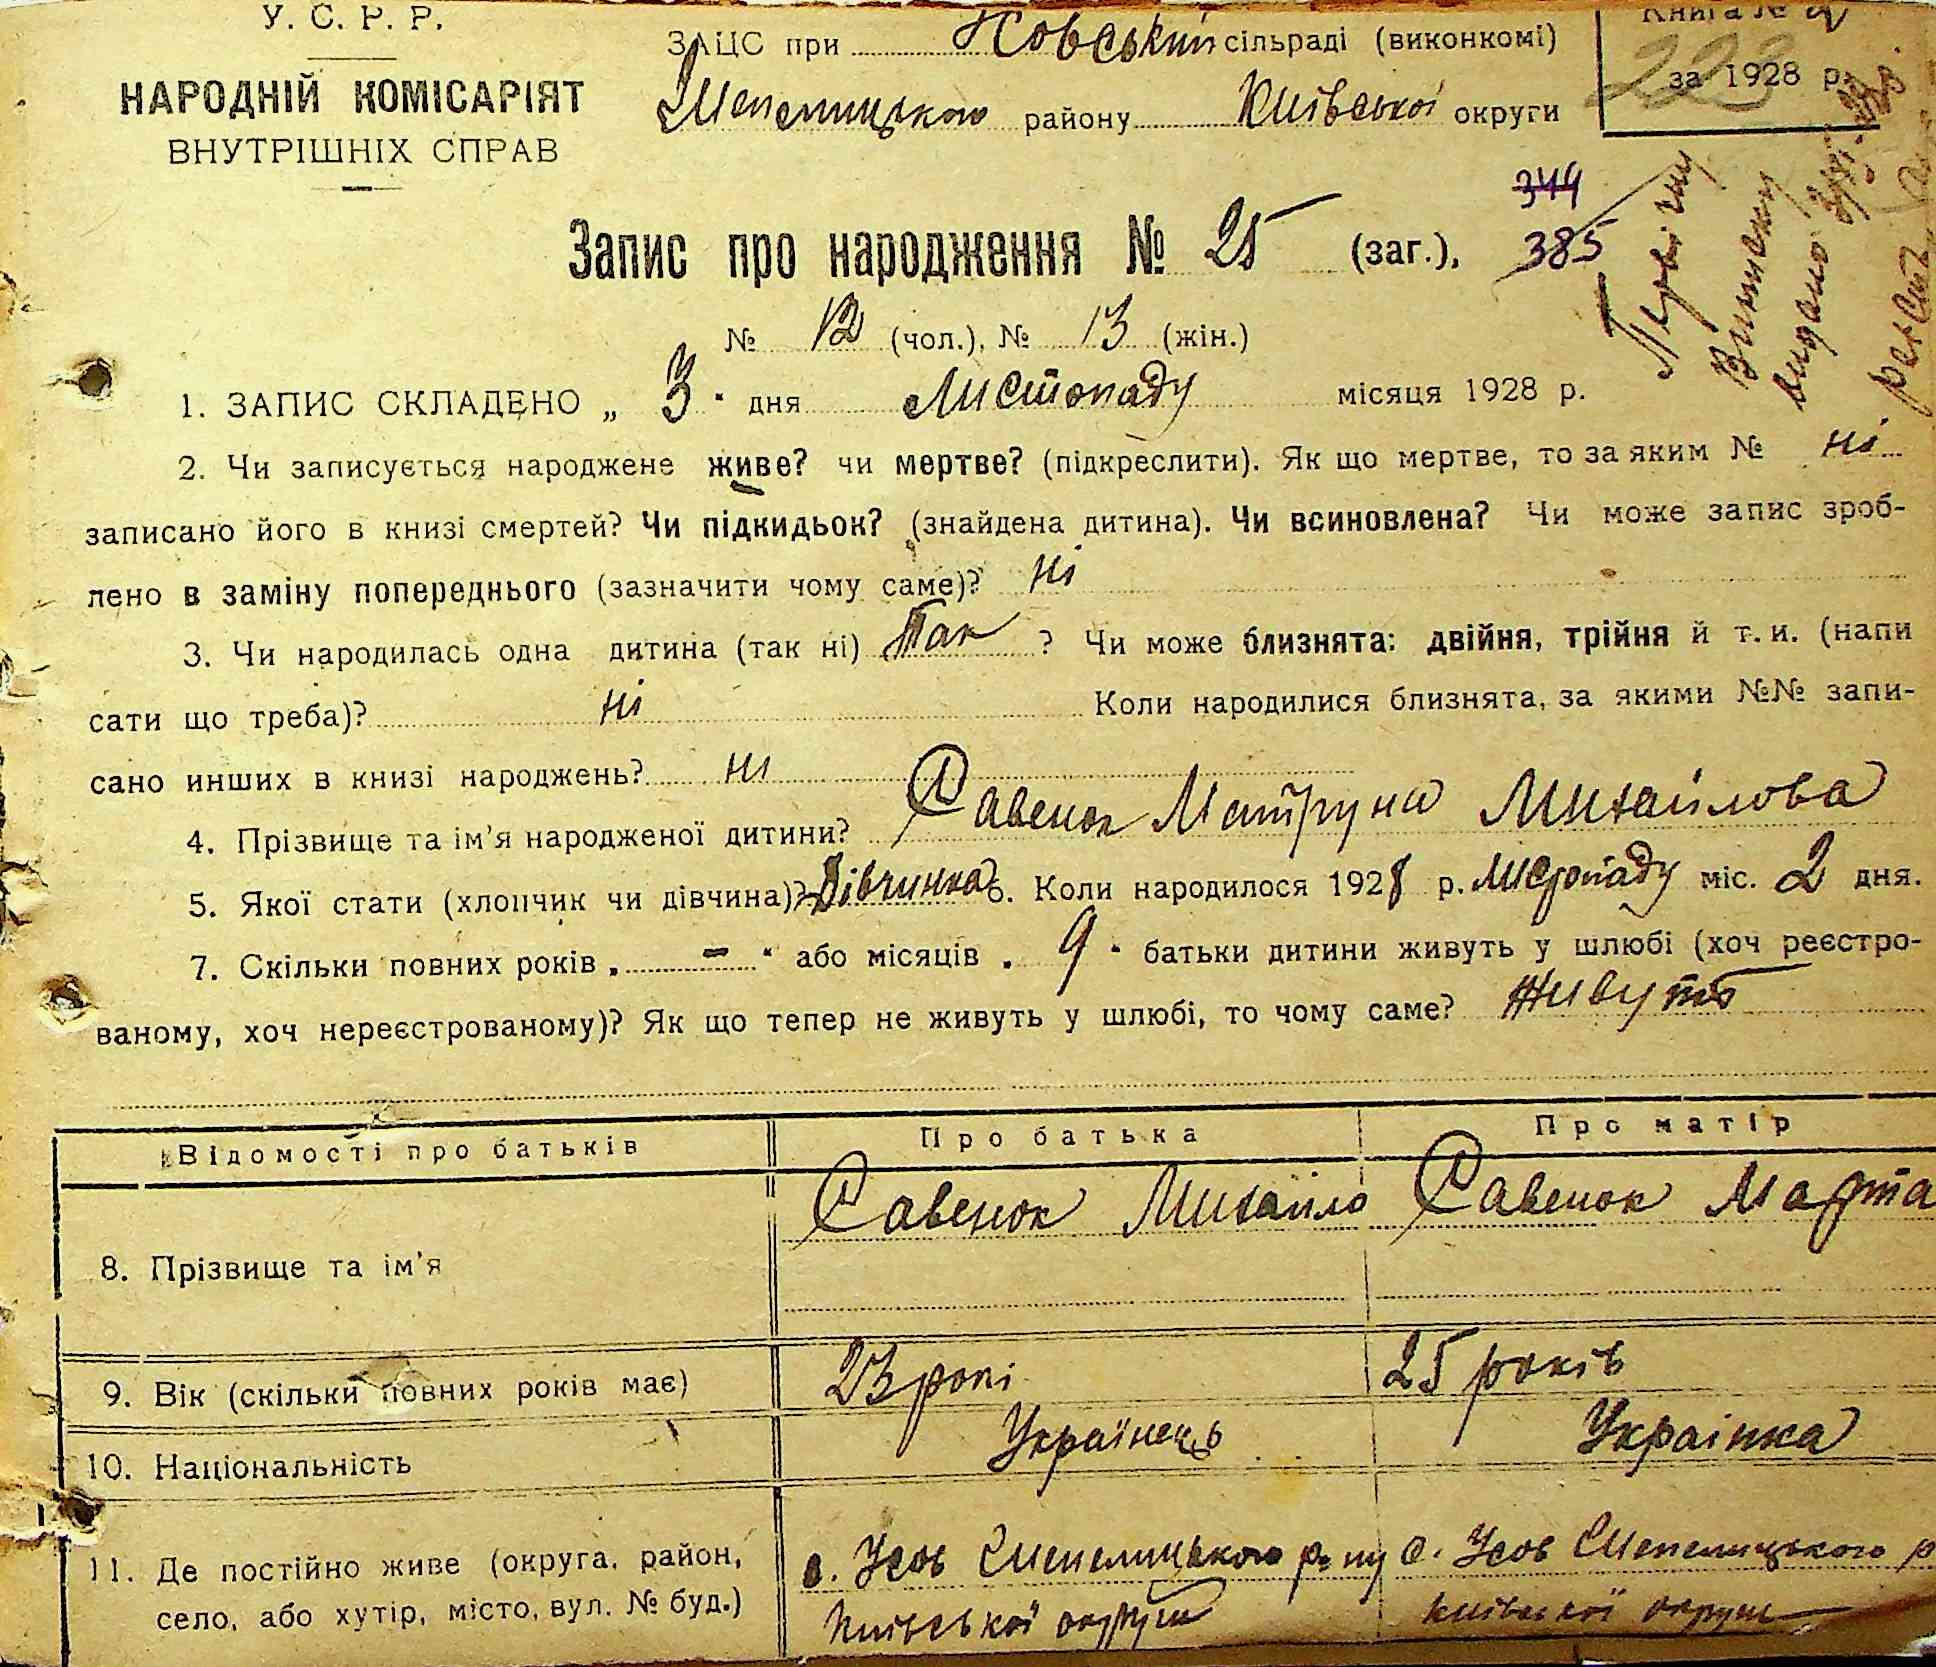 У. С. Р. Р.
НАРОДНІЙ КОМІСАРІЯТ
ВНУТРІШНІХ СПРАВ
ЗАЦС при сільраді (виконкомі)
Шепелицького району Київської округи
Книга №
за 1928 р.
223
Запис про народження № 25 (заг.),
344
385
Первісну
Виписку
видано
№ 12 (чол.), № 13 (жін.)
1. ЗАПИС СКЛАДЕНО „ 3 " дня Листопаду місяця 1928 р.
2. Чи записується народжене живе? чи мертве? (підкреслити). Як що мертве, то за яким № ні
записано його в книзі смертей? Чи підкидьок? (знайдена дитина). Чи всиновлена? Чи може запис зроб-
лено в заміну попереднього (зазначити чому саме)? ні
3. Чи народилась одна дитина (так ні) Так ? Чи може близнята: двійня, трійня й т. и. (напи
сати що треба)? ні Коли народилися близнята, за якими №№ запи-
сано инших в книзі народжень? ні
4. Прізвище та ім'я народженої дитини? Савенок Матруна Михайлова
5. Якої стати (хлопчик чи дівчина)? Дівчинка 6. Коли народилося 1928 р. Листопаду міс. 2 дня.
7. Скільки повних років „ - " або місяців „ 9 " батьки дитини живуть у шлюбі (хоч реєстро-
ваному, хоч нереєстрованому)? Як що тепер не живуть у шлюбі, то чому саме? Живуть
Відомості про батьків Про батька Про матір
8. Прізвище та ім'я Савенок Михайло Савенок Марта
9. Вік (скільки повних років має) 23 рокі 25 років
10. Національність Українець Українка
11. Де постійно живе (округа, район, с. Усов Шепелицького р-ну с. Усов Шепелицького р
село, або хутір, місто, вул. № буд.) Київської округи Київської округи